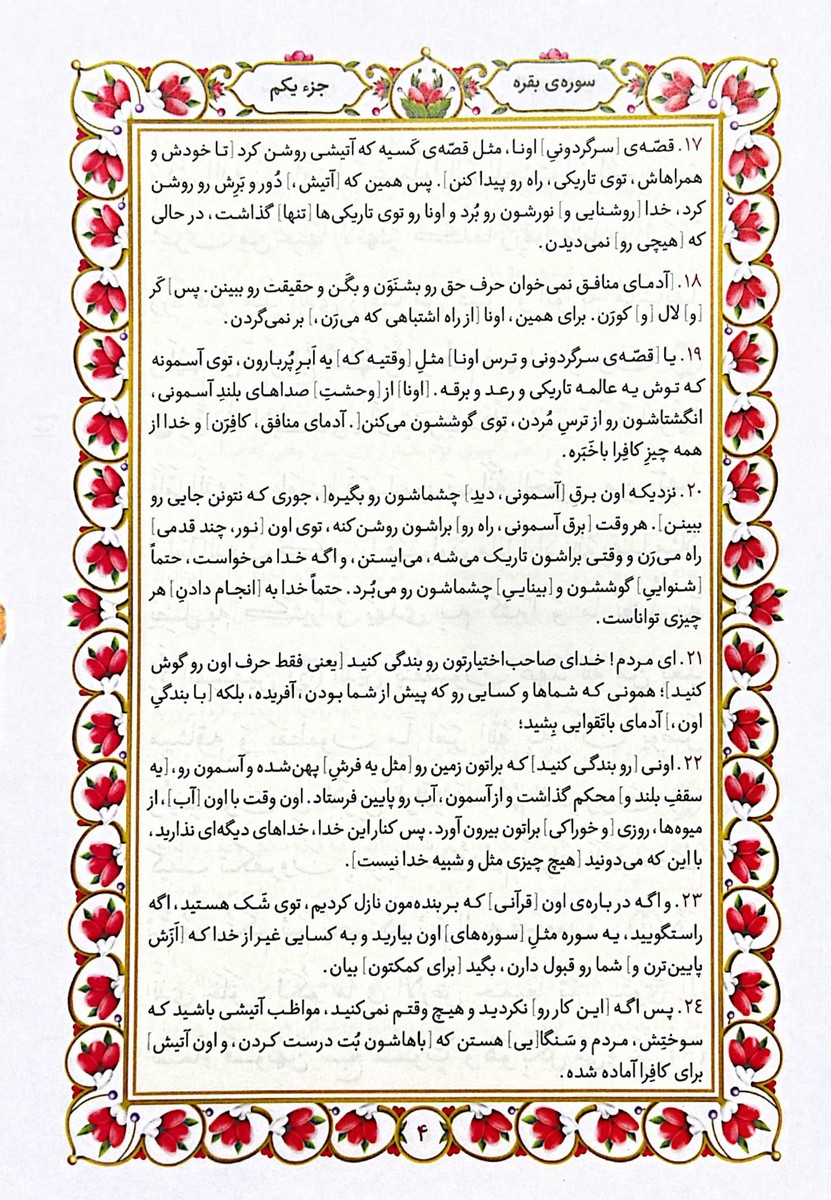 سوره‌ی بقره
جزء یکم
۱۷. قصّه‌ی [سرگردونیِ] اونا، مثل قصّه‌ی کَسیه که آتیشی روشن کرد [تا خودش و
همراهاش، توی تاریکی، راه رو پیدا کنن]. پس همین که [آتیش،] دُور و بَرِش رو روشن
کرد، خدا [روشنایی و] نورشون رو بُرد و اونا رو توی تاریکی‌ها [تنها] گذاشت، در حالی
که [هیچی رو] نمی‌دیدن.
۱۸. [آدمای منافق نمی‌خوان حرف حق رو بشنَوَن و بگَن و حقیقت رو ببینن. پس] کَر
[و] لال [و] کورَن. برای همین، اونا [از راه اشتباهی که می‌رَن،] بر نمی‌گردن.
۱۹. یا [قصّه‌ی سرگردونی و ترس اونا] مثلِ [وقتیه که] یه اَبرِ پُربارون، توی آسمونه
که توش یه عالمه تاریکی و رعد و برقه. [اونا] از [وحشتِ] صداهای بلندِ آسمونی،
انگشتاشون رو از ترسِ مُردن، توی گوششون می‌کنن[. آدمای منافق، کافِرَن] و خدا از
همه چیزِ کافِرا باخَبَره.
۲۰. نزدیکه اون برقِ [آسمونی، دیدِ] چشماشون رو بگیره[، جوری که نتونن جایی رو
ببینن]. هر وقت [برق آسمونی، راه رو] براشون روشن کنه، توی اون [نور، چند قدمی]
راه می‌رَن و وقتی براشون تاریک می‌شه، می‌ایستن، و اگه خدا می‌خواست، حتماً
[شنواییِ] گوششون و [بیناییِ] چشماشون رو می‌بُرد. حتماً خدا به [انجام دادنِ] هر
چیزی تواناست.
۲۱. ای مردم! خدای صاحب‌اختیارتون رو بندگی کنید [یعنی فقط حرف اون رو گوش
کنید]؛ همونی که شماها و کسایی رو که پیش از شما بودن، آفریده، بلکه [با بندگیِ
اون،] آدمای باتَقوایی بِشید؛
۲۲. اونی [رو بندگی کنید] که براتون زمین رو [مثل یه فرشِ] پهن‌شده و آسمون رو، [یه
سقفِ بلند و] محکم گذاشت و از آسمون، آب رو پایین فرستاد. اون وقت با اون [آب]، از
میوه‌ها، روزی [و خوراکی] براتون بیرون آورد. پس کنار این خدا، خداهای دیگه‌ای نذارید،
با این که می‌دونید [هیچ چیزی مثل و شبیه خدا نیست].
۲۳. و اگه در باره‌ی اون [قرآنی] که بر بنده‌مون نازل کردیم، توی شَک هستید، اگه
راستگویید، یه سوره مثلِ [سوره‌های] اون بیارید و به کسایی غیر از خدا که [اَزَش
پایین‌ترن و] شما رو قبول دارن، بگید [برای کمکتون] بیان.
۲۴. پس اگه [این کار رو] نکردید و هیچ وقتم نمی‌کنید، مواظب آتیشی باشید که
سوختِش، مردم و سَنگا[یی] هستن که [باهاشون بُت درست کردن، و اون آتیش]
برای کافِرا آماده شده.
۴